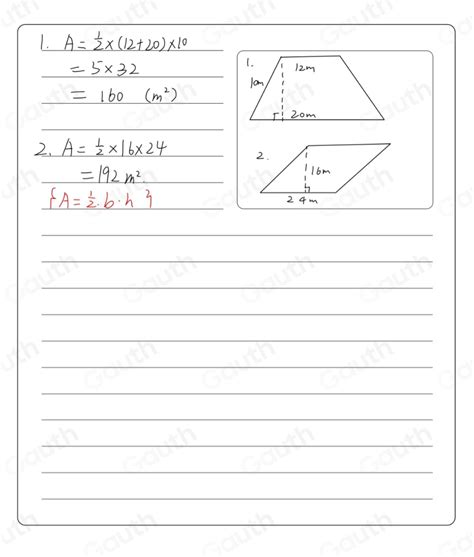 1. A = ½ × (12+20) × 10
= 5 × 32
= 160 (m²)
2. A = ½ × 16 × 24
= 192 m².
{A = ½ · b · h}
1.
12m
10m
20m
2.
16m
24m
Gauth